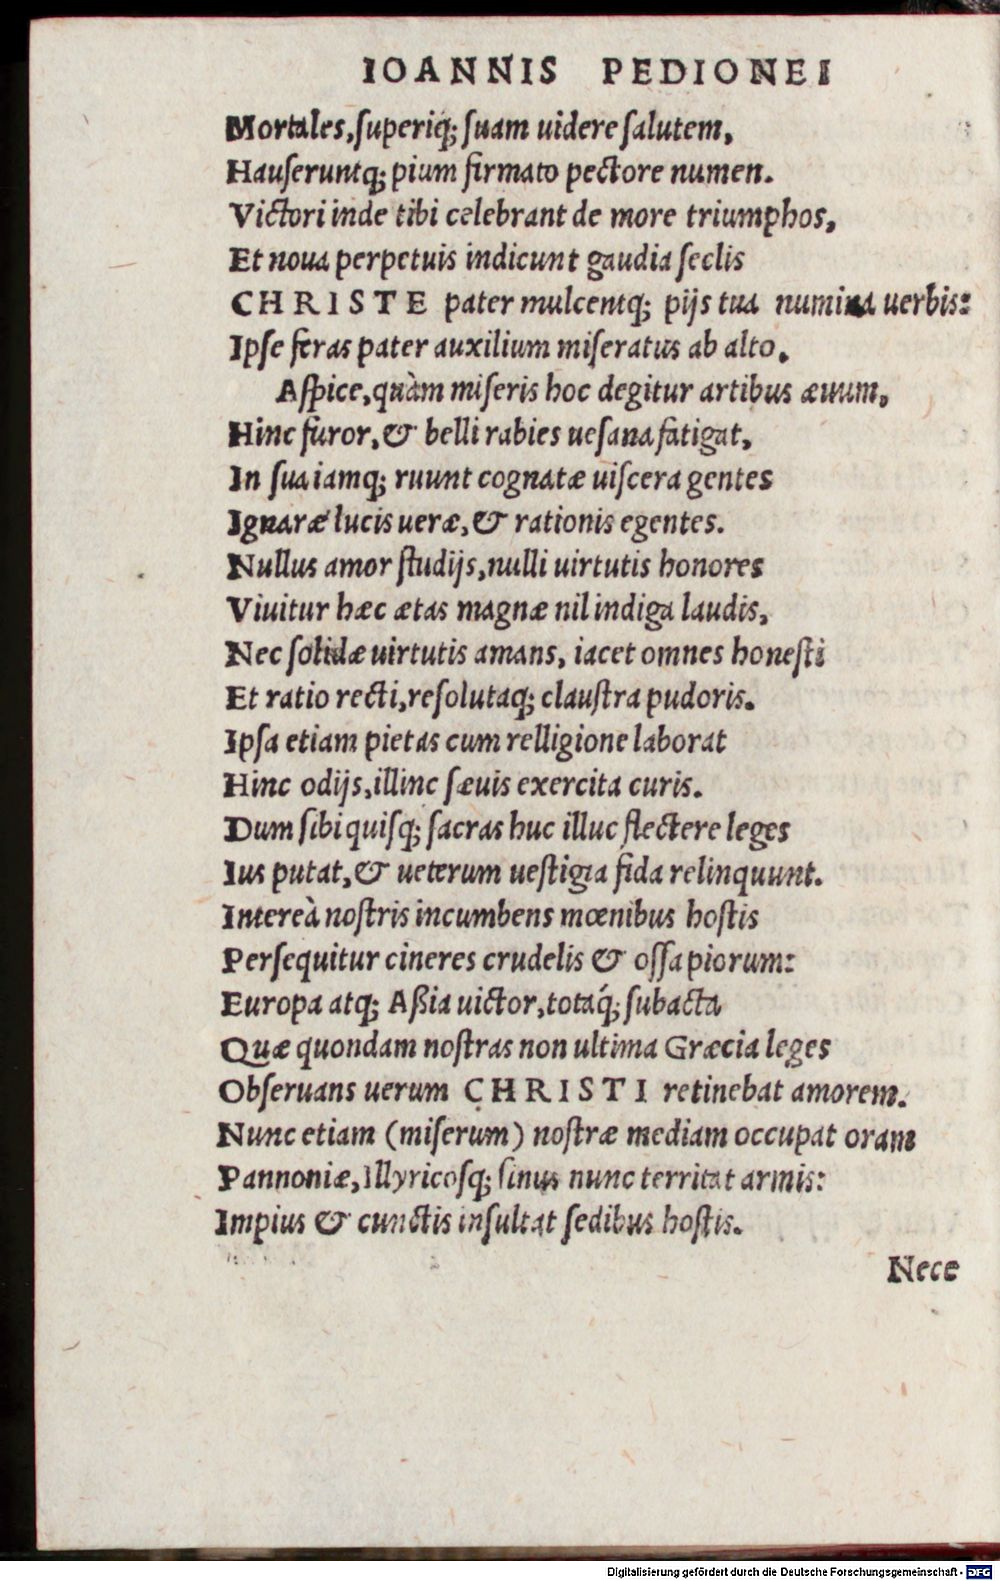 IOANNIS PEDIONEI
Mortales, ſuperiq; ſuam uidere ſalutem,
Hauſeruntq; pium firmato pectore numen.
Victori inde tibi celebrant de more triumphos,
Et noua perpetuis indicunt gaudia ſeclis
CHRISTE pater mulcentq; pijs tua numina uerbis:
Ipſe feras pater auxilium miſeratus ab alto.
Aſpice, quàm miſeris hoc degitur artibus æuum,
Hinc furor, & belli rabies ueſana fatigat,
In ſua iamq; ruunt cognatæ uiſcera gentes
Ignaræ lucis ueræ, & rationis egentes.
Nullus amor ſtudijs, nulli uirtutis honores
Viuitur hæc ætas magnæ nil indiga laudis,
Nec ſolidæ uirtutis amans, iacet omnes honeſti
Et ratio recti, reſolutaq; clauſtra pudoris.
Ipſa etiam pietas cum relligione laborat
Hinc odijs, illinc ſæuis exercita curis.
Dum ſibi quiſq; ſacras huc illuc flectere leges
Ius putat, & ueterum ueſtigia fida relinquunt.
Intereà noſtris incumbens mœnibus hoſtis
Perſequitur cineres crudelis & oſſa piorum:
Europa atq; Aßia uictor, totaq́; ſubacta
Quæ quondam noſtras non ultima Græcia leges
Obſeruans uerum CHRISTI retinebat amorem.
Nunc etiam (miſerum) noſtræ mediam occupat oram
Pannoniæ, Illyricoſq; ſinus nunc territat armis:
Impius & cunctis inſultat ſedibus hoſtis.
Nece
Digitalisierung gefördert durch die Deutsche Forschungsgemeinschaft - DFG